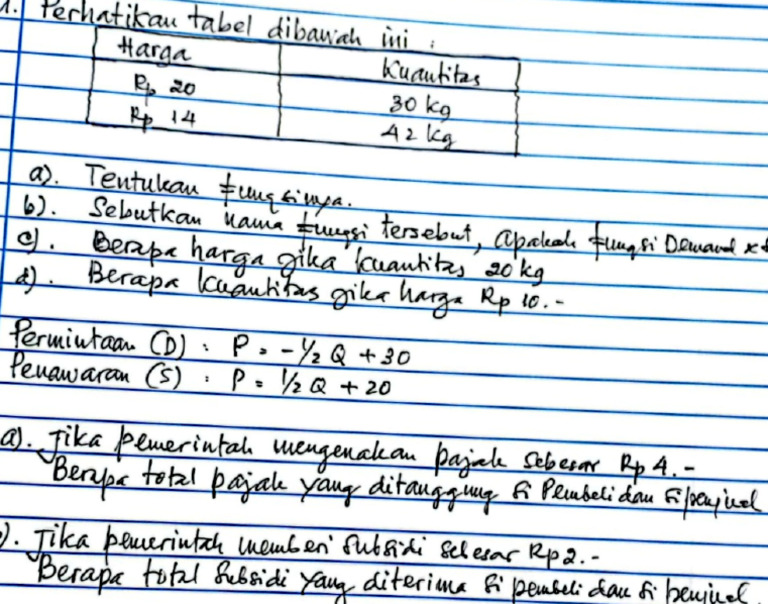 1. Perhatikan tabel dibawah ini :
Harga Kuantitas
Rp 20 30 kg
Rp 14 42 kg
a). Tentukan fungsinya.
b). Sebutkan nama fungsi tersebut, apakah fungsi Demand
c). Berapa harga jika kuantitas 20 kg
d). Berapa kuantitas jika harga Rp 10.-
Permintaan (D) : P = -1/2 Q + 30
Penawaran (S) : P = 1/2 Q + 20
a). Jika pemerintah mengenakan pajak sebesar Rp 4.-
Berapa total pajak yang ditanggung si Pembeli dan si penjual
). Jika pemerintah memberi subsidi sebesar Rp 2.-
Berapa total subsidi yang diterima si pembeli dan si penjual.